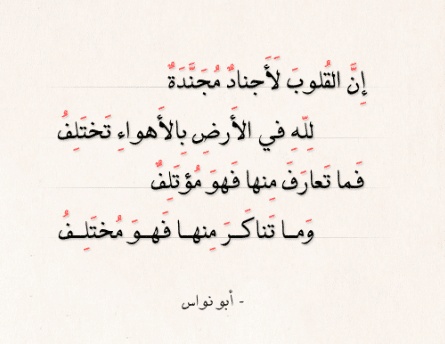 إِنَّ القُلوبَ لَأَجنادٌ مُجَنَّدَةٌ
لِلَّهِ في الأَرضِ بِالأَهواءِ تَختَلِفُ
فَما تَعارَفَ مِنها فَهوَ مُؤتَلِفٌ
وَمـا تَناكَـرَ مِنهـا فَهـوَ مُختَلِـفُ
- أبو نواس